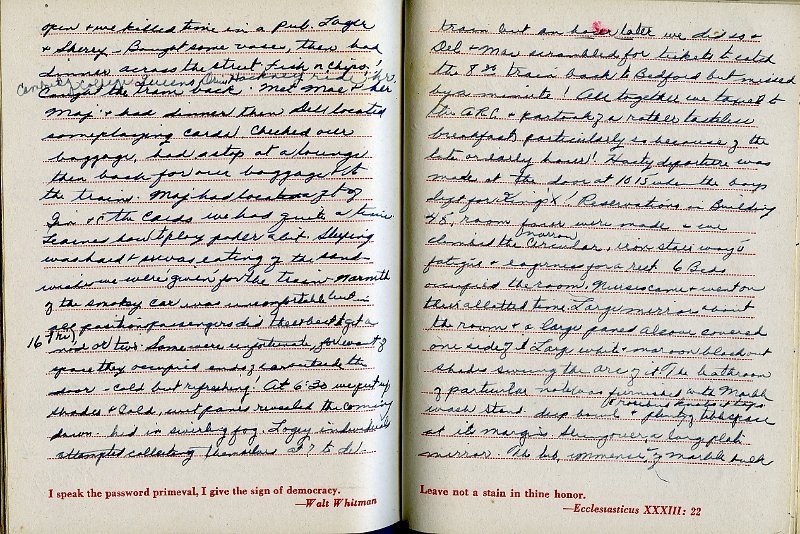 open & we killed time in a Pub. Lager
& Sherry - Bought some vases, then had
dinner across the street. Fish n Chips!
Queens Dr. Hackney ride
Caught the train back. Met Mac & her
Maj. & had dinner then Dell located
some playing cards. Checked our
baggage, had a stop at a lounge
then back for our baggage & to
the train. Maj had
Gin & with cards we had quite a time
Learned how to play poker a bit. Sleeping
was hard & so was eating of the sand-
wiches we were given for the train. Warmth
of the smokey car was uncomfortable but in
position passengers did their best to get a
16 Fri)
nod or two. Some were unfortunate, for want of
space they occupied ends of car outside the
door - cold but refreshing! At 6:30 we put up
shades & cold, wet panes revealed the coming
dawn hid in swirling fog. Logey individuals
attempted collecting themselves at 7 to
I speak the password primeval, I give the sign of democracy.
—Walt Whitman
train but an hour later we did so &
Del & Mac scrambled for tickets to catch
the 8 30 train back to Bedford but missed
by a minute! All together we taxied to
the ARC & partook of a rather tasteless
breakfast particularly so because of the
late or early hour! Hasty departure was
made at the door at 10 15 when the boys
left for King X! Reservations in Building
48, room four were made & we
narrow
climbed the circular, iron stair way to
fatigue & eagerness for a rest. 6 Beds
occupied the room. Nurses came & went on
their allotted time. Large mirror about
the room & a large paned alcove covered
one side of it. Large white & maroon blackout
shades swung the arc of it. The bathroom
of particular note was furnished with Marble
wash stand. deep bowl & plenty of table space
at its margin. Hung over, a large plate
mirror. The tub, immense, of marble bulk
Leave not a stain in thine honor.
—Ecclesiasticus XXXIII: 22